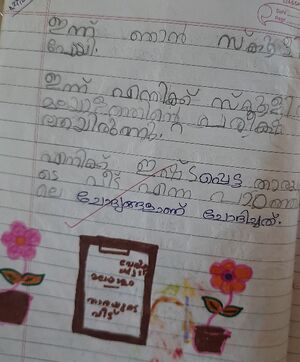 ഇന്ന് ഞാൻ സ്കൂളിൽ
പോയി.
ഇന്ന് എനിക്ക് സ്കൂളി
മലയാളത്തിന്റെ പരീക്ഷ
ആയിരുന്നു.
എനിക്ക് ഇഷ്ടപ്പെട്ട താരയു
ടെ വീട് എന്ന പാഠത്തി
ലെ ചോദ്യങ്ങളാണ് ചോദിച്ചത്.
മലയാളം
താരയുടെ
വീട്